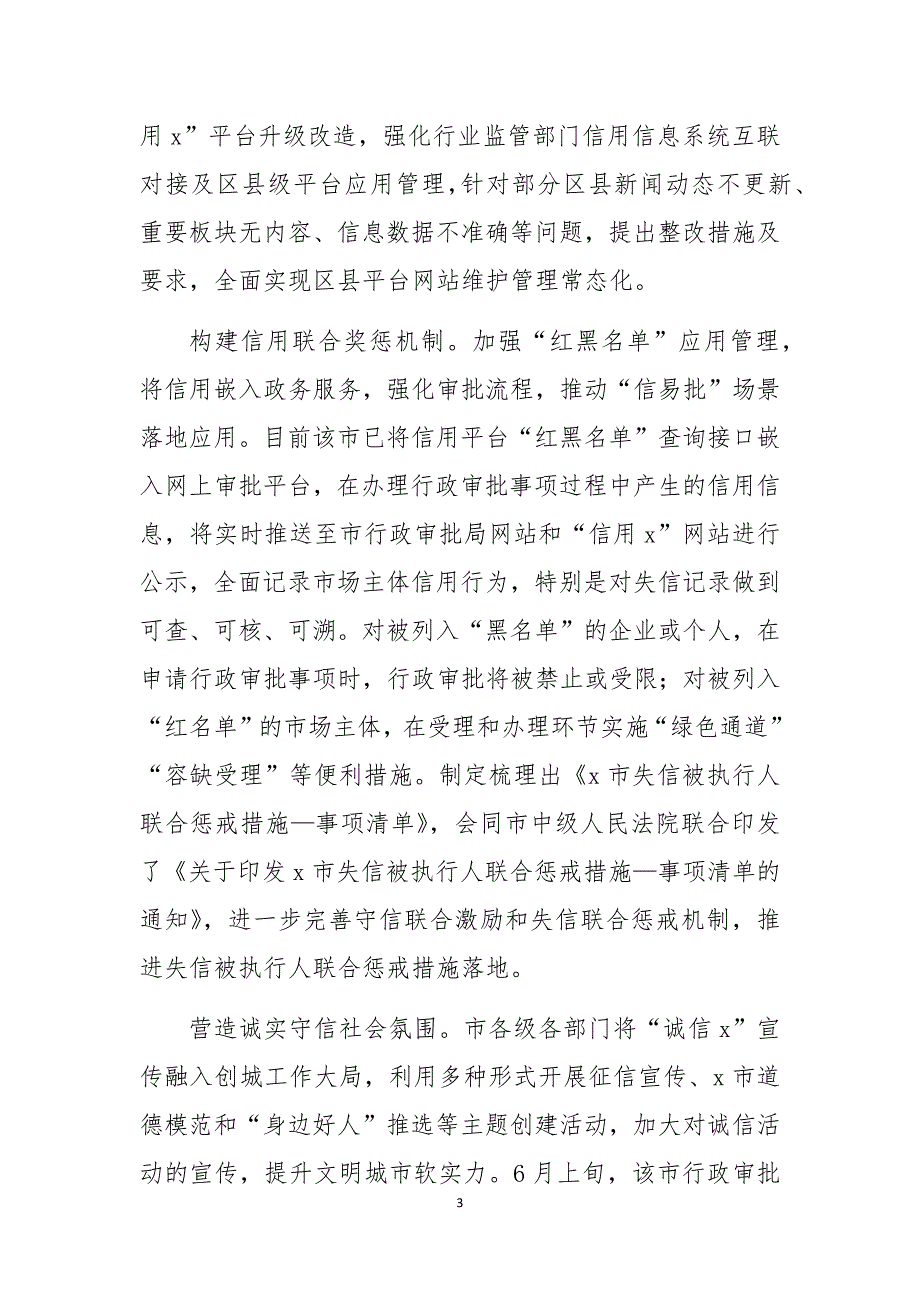 用 x”平台升级改造，强化行业监管部门信用信息系统互联
对接及区县级平台应用管理，针对部分区县新闻动态不更新、
重要板块无内容、信息数据不准确等问题，提出整改措施及
要求，全面实现区县平台网站维护管理常态化。
构建信用联合奖惩机制。加强“红黑名单”应用管理，
将信用嵌入政务服务，强化审批流程，推动“信易批”场景
落地应用。目前该市已将信用平台“红黑名单”查询接口嵌
入网上审批平台，在办理行政审批事项过程中产生的信用信
息，将实时推送至市行政审批局网站和“信用 x”网站进行
公示，全面记录市场主体信用行为，特别是对失信记录做到
可查、可核、可溯。对被列入“黑名单”的企业或个人，在
申请行政审批事项时，行政审批将被禁止或受限；对被列入
“红名单”的市场主体，在受理和办理环节实施“绿色通道”
“容缺受理”等便利措施。制定梳理出《x 市失信被执行人
联合惩戒措施—事项清单》，会同市中级人民法院联合印发
了《关于印发 x 市失信被执行人联合惩戒措施—事项清单的
通知》，进一步完善守信联合激励和失信联合惩戒机制，推
进失信被执行人联合惩戒措施落地。
营造诚实守信社会氛围。市各级各部门将“诚信 x”宣
传融入创城工作大局，利用多种形式开展征信宣传、x 市道
德模范和“身边好人”推选等主题创建活动，加大对诚信活
动的宣传，提升文明城市软实力。6 月上旬，该市行政审批
3